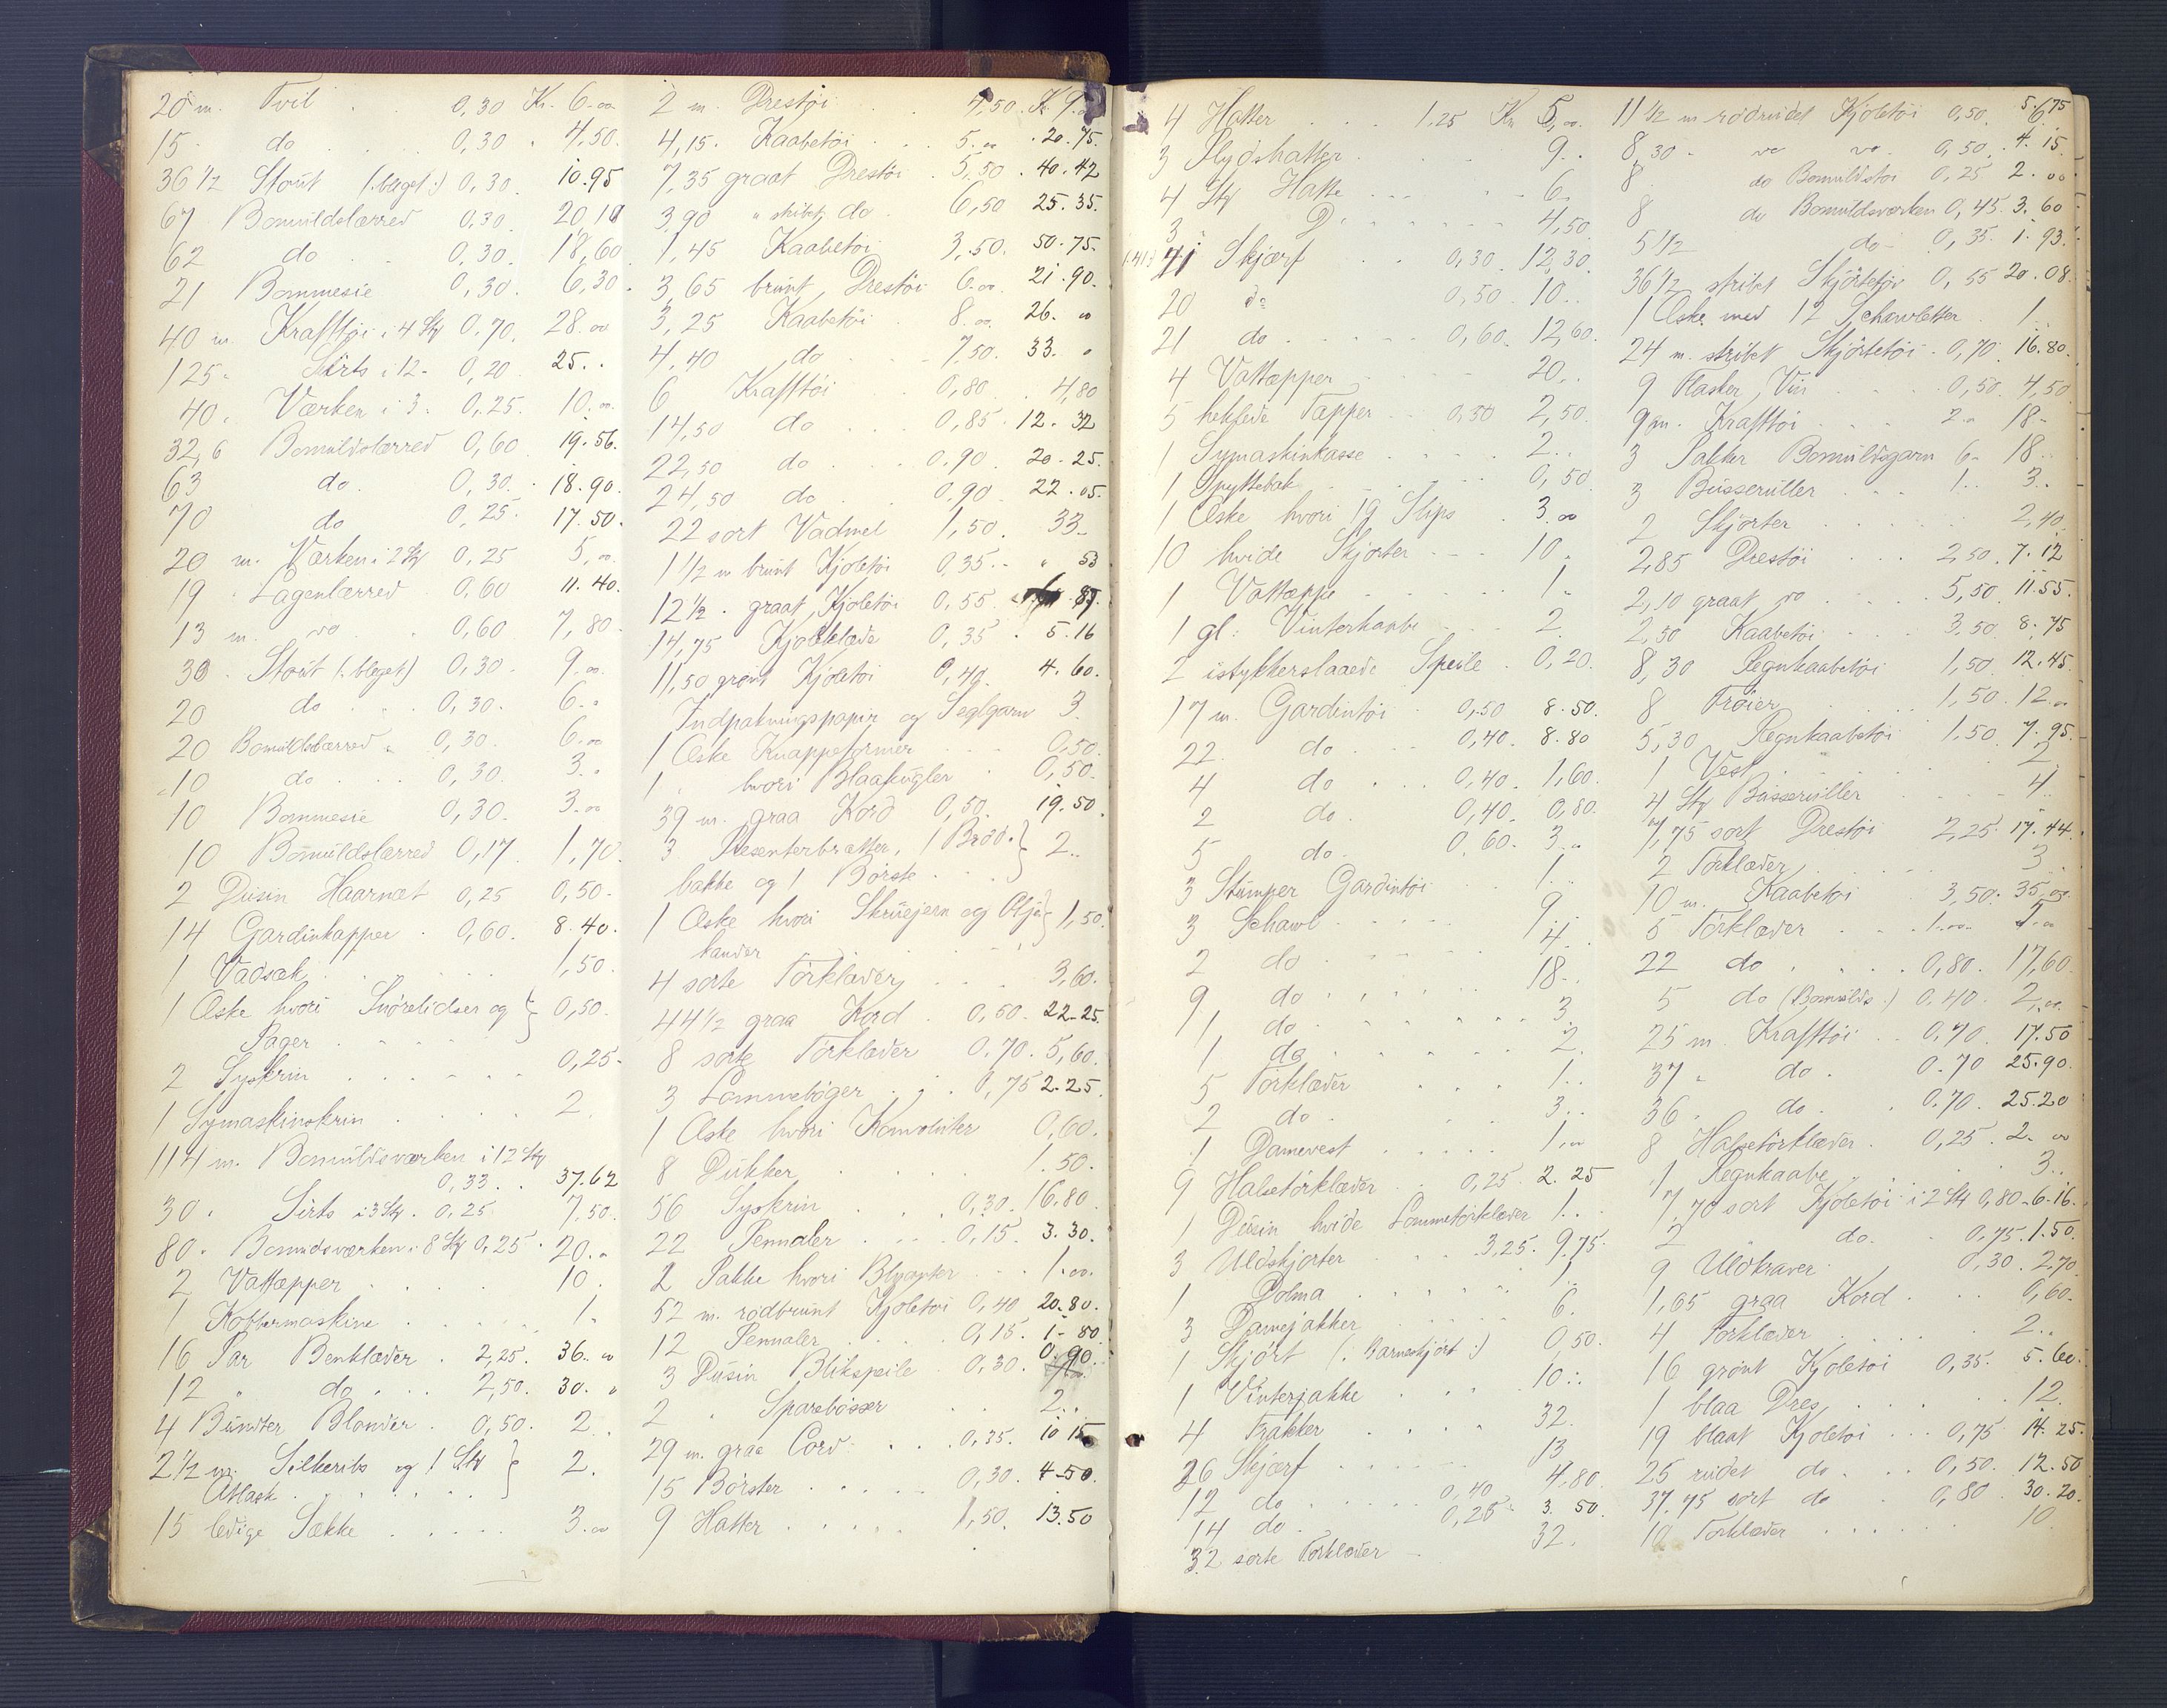 20 m. Tvil . . 0,30 Kr. 6.00
15 . do . . . 0,30 . 4,50.
36 1/2 Stout (: bleget :) 0,30. 10.95
67 Bomuldslærred 0,30. 20,10
62 do . . 0,30. 18,60
21 Bommesie 0,30. 6,30.
40 m. Krafttøi i 4 Stk 0,70. 28.00
125 " Sirts i 12 - 0,20 25. .
40 . Værken i 3 . 0,25. 10.00
32,6 Bomuldslærred 0,60 19.56.
63 do. 0,30. 18.90.
70 do 0,25. 17.50.
20 m. Værken i 2 Stk 0,25 5,00
19 . Lagenlærred . 0,60 11.40.
13 m. do . 0,60 7,80.
30 . Stout (: bleget) 0,30. 9.00
20 do . . . 0,30. 6. "
20 Bomuldslærred " 0,30. 6.00
10 do . . . 0,30. 3. "
10 Bommesie 0,30. 3.00
10 Bomuldslærred 0,17. 1,70.
2 Dusin Haarnæt 0,25 0,50.
14 Gardinkapper . 0,60. 8.40.
1 Vadsæk . . . . . 1,50.
1 Æske hvori Snørelidser og } 0,50.
Pager . . . . .
2 Syskrin . . . . . . 0,25-
1 Symaskinskrin . . . . 2.
114 m. Bomuldsværken i 12 Stk
0,33. . 37.62
30 . Sirts i 3 Stk . 0,25 7,50.
80 . Bomuldsværken i 8 Stk 0,25 . 20. "
2 Vattæpper . . . . 10.
1 Kobbermaskine . . . . 1.
16 Par Benklæder . 2,25. 36. 00
12 " do . . . 2,50. 30. "
4 Bundter Blonder . 0,50. 2. .
2 1/2 m. Silkeribs og 1 Stk } 2.
Atlask . . . . . . .
15 ledige Sække . . . . . 3.00
2 m. Drestøi . . 4,50. Kr. 9.
4,15. Kaabetøi . . . 5.00 . 20.75.
7,35 graat Drestøi . 5,50 . 40.42
3,90 " stribet do . 6,50 25.35.
1,45 Kaabetøi . 3,50. 50.75.
3,65 brunt Drestøi 6.00 21.90.
3,25 Kaabetøi . 8.00 26. 00
4,40 do . . . . 7,50. 33. "
6 Krafttøi . . . 0,80 . 4,80
14,50 do . . . 0,85. 12.32
22,50 do . . . 0.90 . 20-25.
24,50 do . 0,90 22.05.
22 sort Vadmel 1,50. 33-
1 1/2 m brunt Kjoletøi 0,35.- " 53
12 1/2 . graat Kjoletøi 0,55 . 87.
14,75 Kjoleklæde 0,35 . 5.16
11,50 grønt Kjoletøi 0,40. 4.60.
Indpakningspapir og Seglgarn 3.
1 Æske Knappeformer . . . 0,50.
1 " hvori Blaakugler . 0,50.
39 m. graa Kord 0,50. 19.50.
3 Presenterbrætter, 1 Brød- } 2..
bakke og 1 Børste . . .
1 Æske hvori Skruejern og Olje } 1,50.
kander . . . . .
4 sorte Tørklæder . . . 3,60.
44 1/2 graa Kord . 0,50. 22-25.
8 sorte Tørklæder 0.70. 5,60.
3 Lommebøger . . . 0,75 2.25.
1 Æske hvori Konvolutter 0,60.
8 Dukker . . . . . 1.50.
56 Syskrin . . . 0,30. 16.80.
22 Pennaler . . . 0,15. 3.30.
2 Pakke hvori Blyanter . . . 1.00.
52 m. rødbrunt Kjoletøi 0,40 20.80.
12 Pennaler . . . . 0,15. 1-80.
3 Dusin Blikspeile 0,30. 0.90.
2 " Sparebøsser . . 2. .
29 m. graa Cord . . . 0,35. 10 15
15 Børster . . . . . 0,30. 4-50.
9 Hatter . . . . . 1,50. 13.50
4 Hatter . . . 1,25 Kr 5,00.
3 Flydshatter . . . 9. .
4 Stk Hatte . . . . . 6.
3 D. . . . . . . 4,50.
(:41:) 41 Skjærf . . 0,30. 12,30.
20 do . . 0,50. 10. .
21 do . . . . . 0,60. 12,60.
4 Vattæpper . . . . 20. .
5 heklede Tæpper . . 0,50 2,50.
1 Symaskinkasse . . . . 2. .
1 Spyttebak . . . . . 0,50
1 Æske hvori 19 Slips . 3.00
10 hvide Skjorter . . . 10 .
1 Vattæppe . . . . . 1 "
1 gl: Vinterkaabe . . . 2.
2 istykkerslaaede Speile . 0,20.
17 m. Gardintøi . 0,50 8.50.
22. do . . . 0,40. 8.80
4 do . . . 0,40. 1,60.
2 do . 0,40. 0,80.
5 do . 0.60. 3. "
3 Stumper Gardintøi . . 1. .
3 Schawl . . . . . 9.
2 do . . . . . 4. .
9 do . . . . . . 18. .
1 do . . . . . . 3.
1 do . . . . . . 2.
5 Tørklæder . . . . 1. .
2 do . . . . . 3. .
1 Damevest . . . . . 1,00
9 Halsetørklæder . . 0,25. 2.25
1 Dusin hvide Lommetørklæder 1. .
3 Uldskjorter . . . 3,25. 9.75.
1 Dolma . . . . . . 1.
3 Damejakker . . . . . 6.
1 Skjørt (: Barneskjørt :) 0,50.
1 Vinterjakke . . . . 10. .
4 Frakker . . . . . 32.
26 Skjærf . . . . . 13
12 do . . . . . 0,40 4.80.
14 do . 0,25. 3. 50.
32 sorte Tørklæder - 32.
11 1/2 m rødrudet Kjoletøi 0,50. 5.75
8,30 - do do . 0,50 . 4.15.
8 . do Bomuldstøi 0,25 2.00.
8 do Bomuldsværken 0,45. 3.60
5 1/2 do . 0,35. 1.93.
36 1/2 stribet Skjørtetøi 0,55 20.08.
1 Æske med 12 Schawletter . 1. .
24 m. stribet Skjørtetøi . 0,70. 16.80.
9 Flasker Vin . . . 0,50. 4,50.
9 m. Krafttøi . . . . 2. " 18-
3 Pakker Bomuldsgarn 6- 18 . .
3 Busseruller . . . 1. . 3. .
2 Skjorter . . . . . . 2,40.
2,85 Drestøi . . . 2,50. 7.12
2,10 graat do . . . . 5,50 11.55.
2,50 Kaabetøi . . . 3.50. 8.75
8,30 Regnkaabetøi . 1,50. 12.45.
8 Trøier . . . . . 1,50. 12.00
5,30 Regnkaabetøi 1,50 7.95.
1 Vest . . . . . . . 2
4 Stk Busseruller . . . . 4. .
7,75 sort Drestøi 2,25. 17.44.
2 Tørklæder . . . . . 3.
10 m. Kaabetøi . . 3,50. 35,00.
5 Tørklæder . . . 1.00. 5.00
22 do . . . . 0,80. 17,60.
5 do (Bomulds :) 0,40. 2,00.
25 m. Krafttøi . . 0,70. 17.50
37 " do . 0.70 25.90.
36 " do . . 0.70. 25.20
8 Halsetørklæder . 0,25. 2. 00
1 Regnkaabe . . . . 3. .
7,70 sort Kjoletøi i 2 Stk 0,80-6-16.
2 do . . 0,75. 1.50.
9 Uldkraver . . . 0,30. 2.70.
1,65 graa Kord . . . 0,60.
4 Tørklæder . . . . 2. .
16 grønt Kjoletøi 0,35. 5.60.
1 blaa Dres . . . . 12.
19 blaat Kjoletøi . . . 0,75. 14.25.
25 rudet do . . . 0,50. 12.50
37.75 sort do . 0,80. 30.20.
10 Tørklæder . . . . . 10.